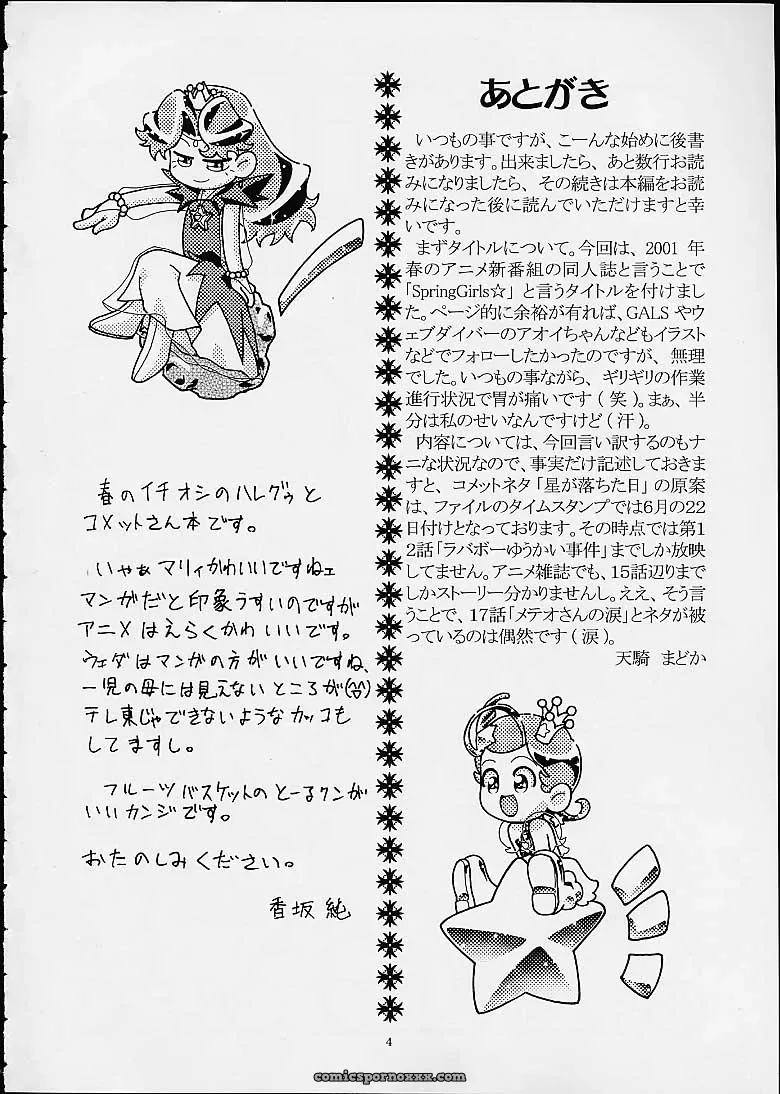 あとがき
いつもの事ですが、こーんな始めに後書
きがあります。出来ましたら、あと数行お読
みになりましたら、その続きは本編をお読
みになった後に読んでいただけますと幸
いです。
まずタイトルについて。今回は、2001 年
春のアニメ新番組の同人誌と言うことで
「SpringGirls☆」と言うタイトルを付けまし
た。ページ的に余裕が有れば、GALS やウ
ェブダイバーのアオイちゃんなどもイラスト
などでフォローしたかったのですが、無理
でした。いつもの事ながら、ギリギリの作業
進行状況で胃が痛いです(笑)。まぁ、半
分は私のせいなんですけど(汗)。
内容については、今回言い訳するのもナ
ニな状況なので、事実だけ記述しておきま
すと、コメットネタ「星が落ちた日」の原案
は、ファイルのタイムスタンプでは6月の22
日付けとなっております。その時点では第1
2話「ラバボーゆうかい事件」までしか放映
してません。アニメ雑誌でも、15話辺りまで
しかストーリー分かりませんし。ええ、そう言
うことで、17話「メテオさんの涙」とネタが被
っているのは偶然です(涙)。
天騎 まどか
春のイチオシのハレグゥと
コメットさん本です。
いやぁマリィかわいいですねェ
マンガだと印象うすいのですが
アニメはえらくかわいいです。
ウェダはマンガの方がいいですね、
一児の母には見えないところが
テレ東じゃできないようなカッコも
してますし。
フルーツバスケットのとーるクンが
いいカンジです。
おたのしみください。
香坂 純
4
comicspornoxxx.com